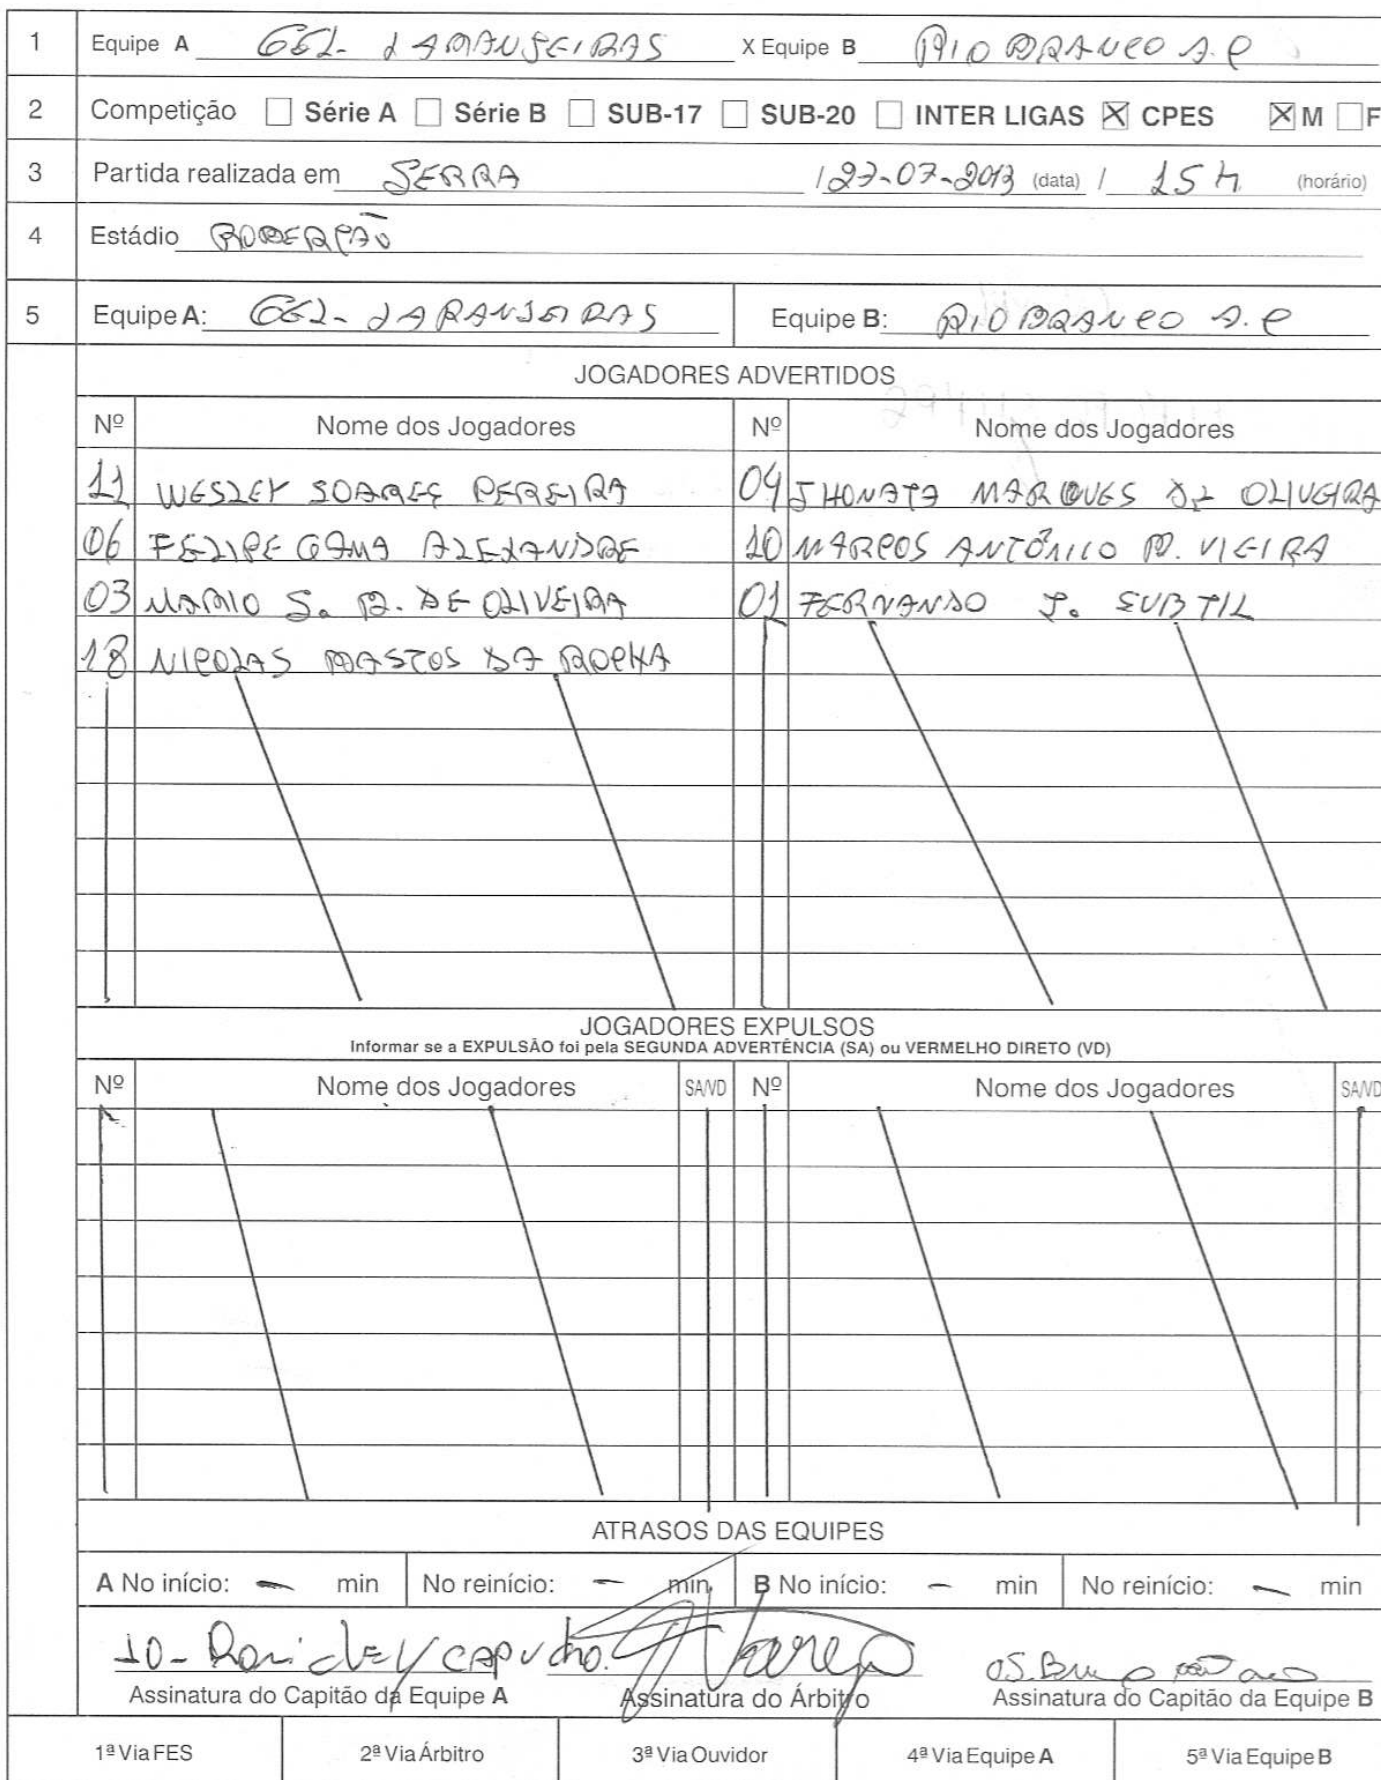 1 Equipe A GEL- LARANJEIRAS X Equipe B RIO BRANCO A.C
2 Competição ☐ Série A ☐ Série B ☐ SUB-17 ☐ SUB-20 ☐ INTER LIGAS ☒ CPES ☒ M ☐ F
3 Partida realizada em SERRA / 27-07-2013 (data) / 15 h (horário)
4 Estádio ROBERTÃO
5 Equipe A: GEL- LARANJEIRAS Equipe B: RIO BRANCO A.C
JOGADORES ADVERTIDOS
Nº Nome dos Jogadores Nº Nome dos Jogadores
11 WESLEY SOARES PEREIRA 04 JHONATA MARQUES DE OLIVEIRA
06 FELIPE GAMA ALEXANDRE 10 MARCOS ANTÔNICO M. VIEIRA
03 MARIO S. R. DE OLIVEIRA 01 FERNANDO J. SUBTIL
18 NICOLAS MASTOS DA ROCHA
JOGADORES EXPULSOS
Informar se a EXPULSÃO foi pela SEGUNDA ADVERTÊNCIA (SA) ou VERMELHO DIRETO (VD)
Nº Nome dos Jogadores SA/VD Nº Nome dos Jogadores SA/VD
ATRASOS DAS EQUIPES
A No início: - min No reinício: - min B No início: - min No reinício: - min
10- Ronicley CAPUcho. 05. Bruno
Assinatura do Capitão da Equipe A Assinatura do Árbitro Assinatura do Capitão da Equipe B
1ª Via FES 2ª Via Árbitro 3ª Via Ouvidor 4ª Via Equipe A 5ª Via Equipe B